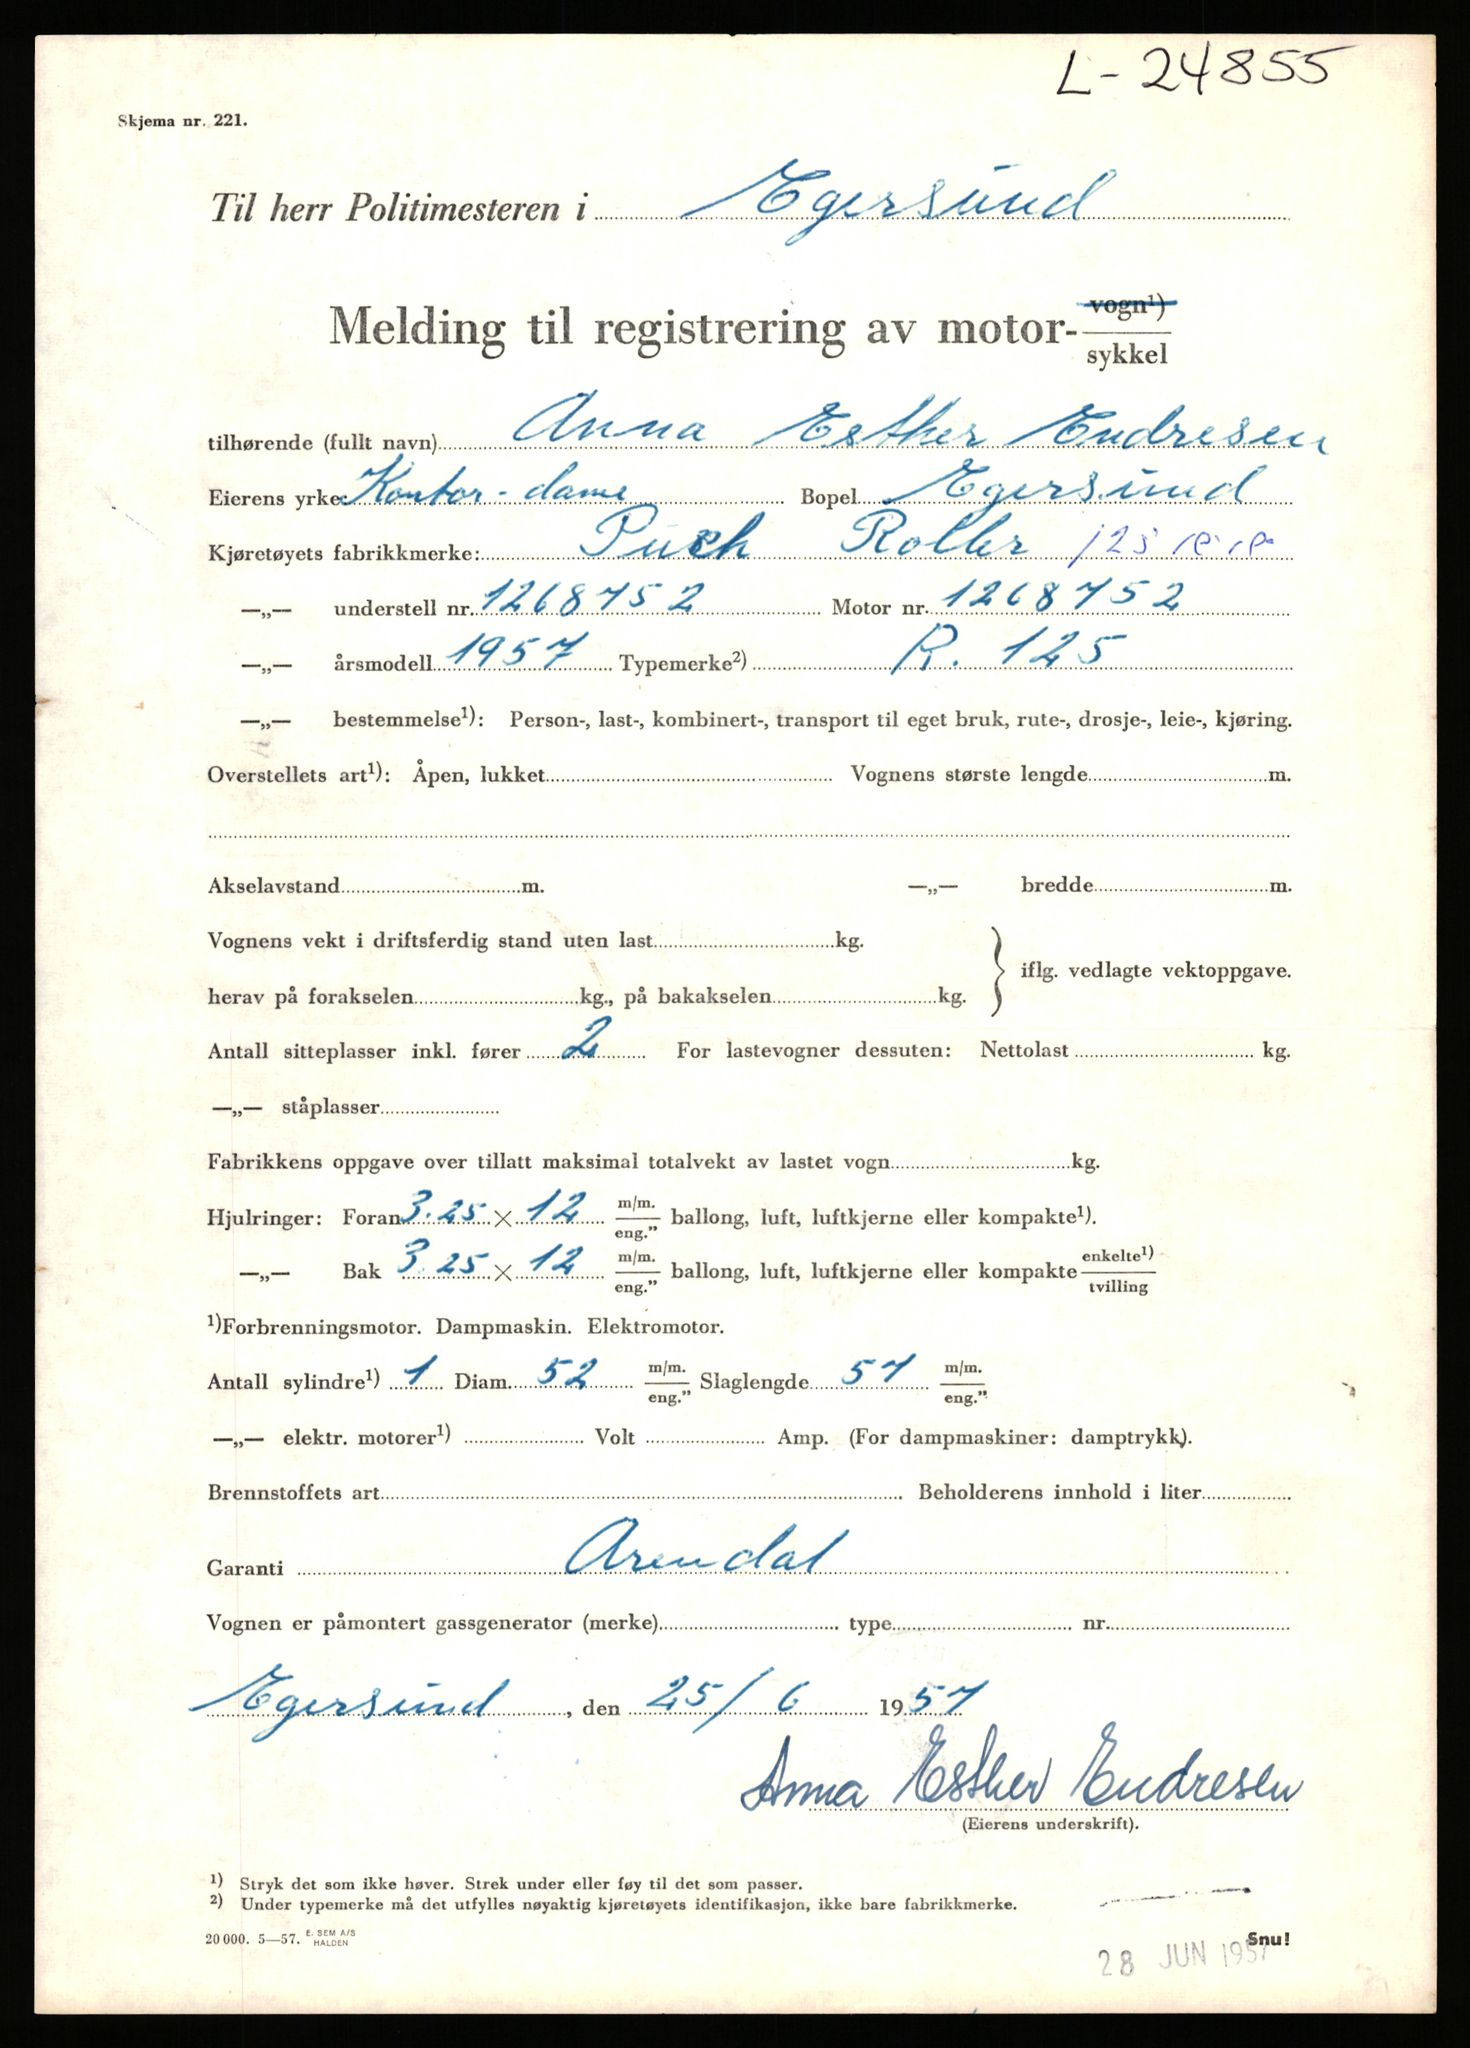 L-24855
Skjema nr. 221.
Til herr Politimesteren i Egersund
Melding til registrering av motor- vogn¹) sykkel
tilhørende (fullt navn) Anna Esther Endresen
Eierens yrke: Kontor-dame Bopel Egersund
Kjøretøyets fabrikkmerke: Puch Roller 125
—„— understell nr. 1268752 Motor nr. 1268752
—„— årsmodell 1957 Typemerke²) R. 125
—„— bestemmelse¹): Person-, last-, kombinert-, transport til eget bruk, rute-, drosje-, leie-, kjøring.
Overstellets art¹): Åpen, lukket : Vognens største lengde m.
Akselavstand m. —„— bredde m.
Vognens vekt i driftsferdig stand uten last kg.
iflg. vedlagte vektoppgave.
herav på forakselen kg., på bakakselen kg.
Antall sitteplasser inkl. fører 2 For lastevogner dessuten: Nettolast kg.
—„— ståplasser
Fabrikkens oppgave over tillatt maksimal totalvekt av lastet vogn kg.
Hjulringer: Foran 3.25 × 12 m/m. eng." ballong, luft, luftkjerne eller kompakte¹).
—„— Bak 3.25 × 12 m/m. eng." ballong, luft, luftkjerne eller kompakte enkelte¹) tvilling
¹)Forbrenningsmotor. Dampmaskin. Elektromotor.
Antall sylindre¹) 1 Diam. 52 m/m. eng." Slaglengde 57 m/m. eng."
—„— elektr. motorer¹) Volt Amp. (For dampmaskiner: damptrykk).
Brennstoffets art Beholderens innhold i liter
Garanti Arendal
Vognen er påmontert gassgenerator (merke) type nr.
Egersund, den 25/6 1957
Anna Esther Endresen
(Eierens underskrift).
¹) Stryk det som ikke høver. Strek under eller føy til det som passer.
²) Under typemerke må det utfylles nøyaktig kjøretøyets identifikasjon, ikke bare fabrikkmerke.
20 000. 5—57. E. SEM A/S HALDEN
Snu!
28 JUN 1957